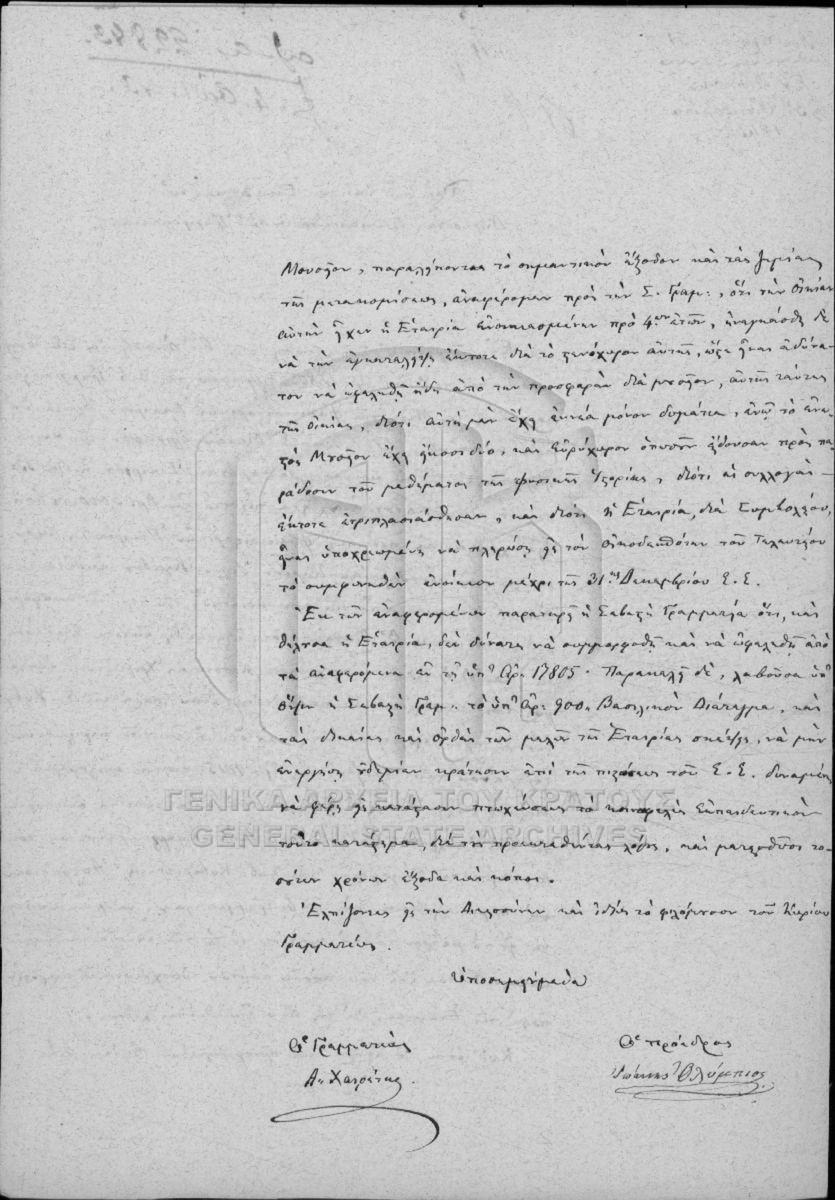 Μουσεῖον, παραλείποντας τὸ σημαντικὸν ἔξοδον καὶ τὰς ζημίας
τῆς μετακομίσεως, ἀναφέρομεν πρὸς τὴν Σ. Γραμ:, ὅτι τὴν οἰκίαν
αὐτὴν εἶχεν ἡ Ἑταιρία ἐνοικιασμένην πρὸ 4ων ἐτῶν, ἠναγκάσθη δὲ
νὰ τὴν ἐγκαταλείψῃ ἔκτοτε διὰ τὸ στενόχωρον αὐτῆς, ὥστε εἶναι ἀδύνα-
τον νὰ ὠφεληθῇ ἤδη ἀπὸ τὴν προσφορὰν διὰ μουσεῖον, αὐτῆς ταύτης
τῆς οἰκίας, διότι αὐτὴ μὲν ἔχει ἐννέα μόνον δωμάτια, ἐνῷ τὸ ἐνε-
στὸς Μουσεῖον ἔχει εἰκοσιδύο, καὶ εὐρύχωρον αἴθουσαν πρὸς πα-
ράδοσιν τοῦ μαθήματος τῆς φυσικῆς Ἱστορίας, διότι αἱ συλλογαὶ
ἔκτοτε ἐτριπλασιάσθησαν, καὶ διότι ἡ Ἑταιρία, διὰ Συμβολαίου,
εἶναι ὑποχρεωμένη νὰ πληρώσῃ εἰς τὸν οἰκοδεσπότην τοῦ τελευταίου
τὸ συμφωνηθὲν ἐνοίκιον μέχρι τῆς 31ης Δεκεμβρίου Ε. Ε.
Ἐκ τῶν ἀναφερομένων παρατηρεῖ ἡ Σεβαστὴ Γραμματεία ὅτι, καὶ
θέλουσα ἡ Ἑταιρία, δὲν δύναται νὰ συμμορφωθῇ καὶ νὰ ὠφεληθῇ ἀπὸ
τὰ ἀναφερόμενα ἐν τῇ ὑπ' Ἀρ. 17805. Παρακαλεῖται δὲ, λαβοῦσα ὑπ'
ὄψιν ἡ Σεβαστὴ Γραμ: τὸ ὑπ' Ἀρ: 900 Βασιλικὸν Διάταγμα, καὶ
τὰς δικαίας καὶ ὀρθὰς τῶν μελῶν τῆς Ἑταιρίας σκέψεις, νὰ μὴν
ἐνεργήσῃ οὐδεμίαν κράτησιν ἐπὶ τῆς πιστώσεως τοῦ Ε. Ε. δυναμένην
νὰ φέρῃ εἰς κατάστασιν πτωχεύσεως τὸ κοινωφελὲς ἐκπαιδευτικὸν
τοῦτο κατάστημα, διὰ τοὺς προεκτεθέντας λόγους, καὶ ματαιωθῶσι το-
σούτων χρόνων ἔξοδα καὶ κόποι.
Ἐλπίζοντες εἰς τὴν δικαιοσύνην καὶ ἰδίως τὸ φιλόμουσον τοῦ Κυρίου
Γραμματέως.
ὑποσημειούμεθα
Ὁ Γραμματεὺς
Ὁ Πρόεδρος
Α. Χαιρέτης.
Ἰωάννης Ὀλύμπιος
ΓΕΝΙΚΑ ΑΡΧΕΙΑ ΤΟΥ ΚΡΑΤΟΥΣ
GENERAL STATE ARCHIVES